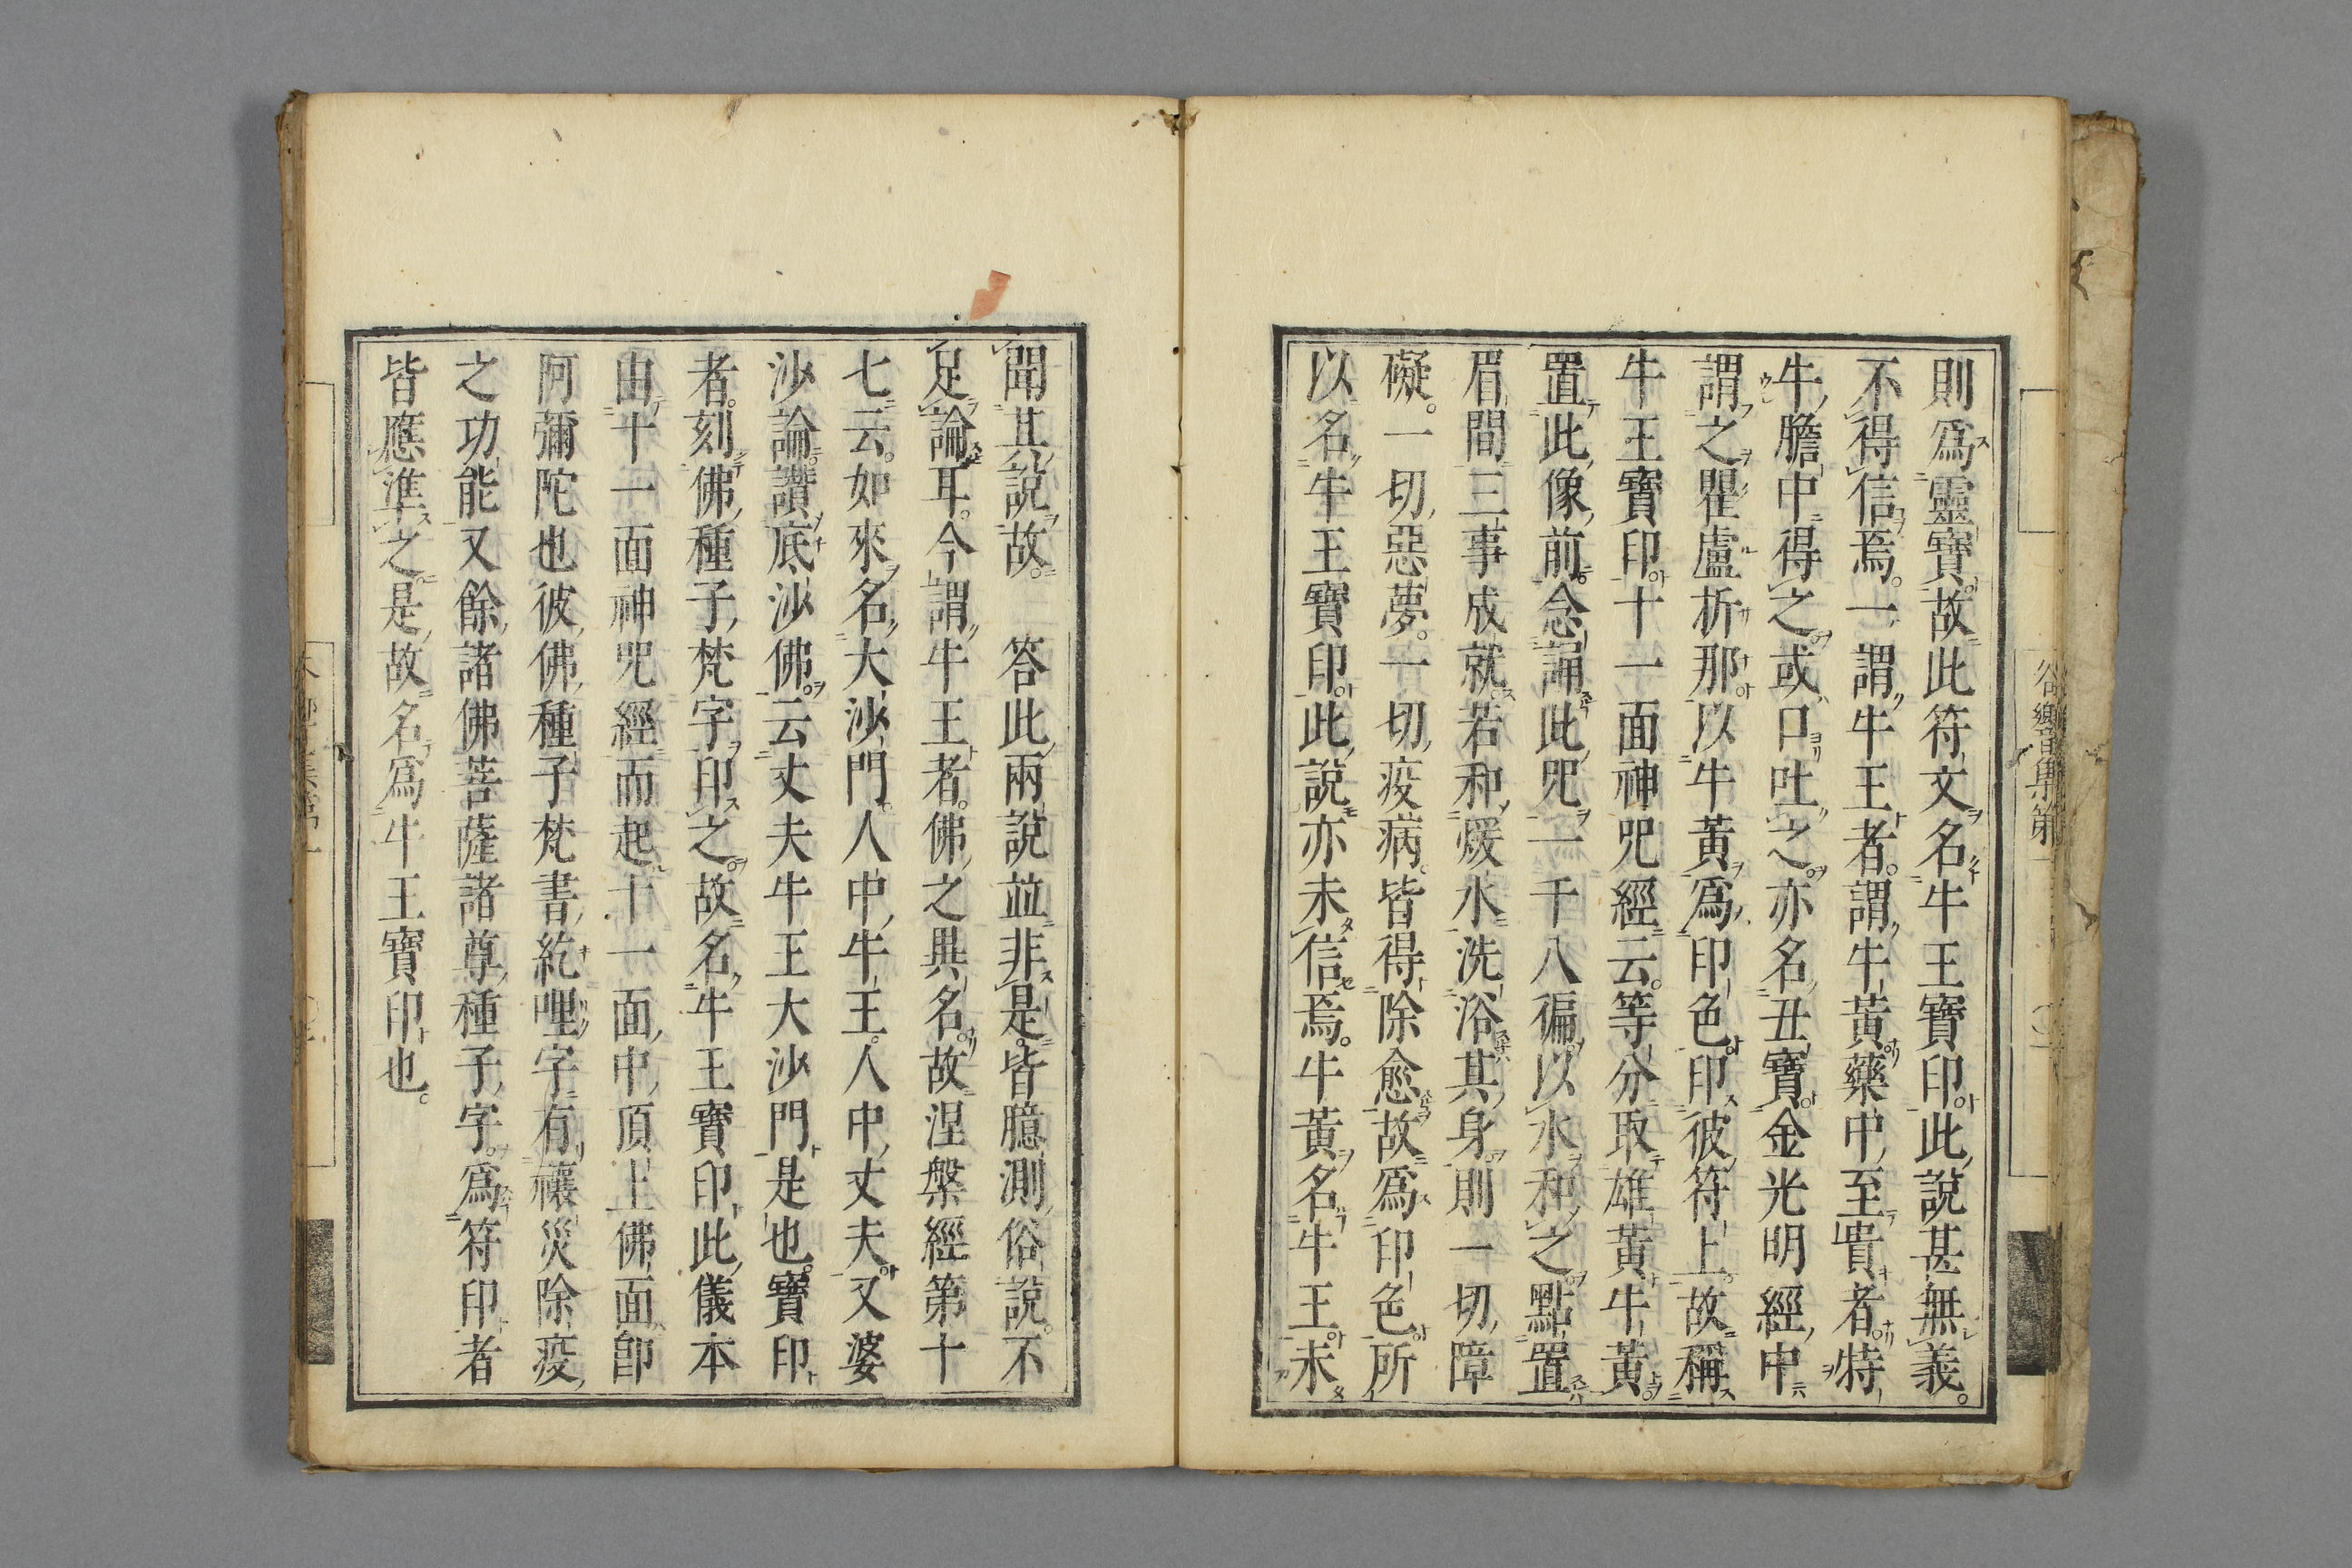 則爲靈寶。故此符文名牛王寶印。此說甚無義。
不得信焉。一謂牛王者。謂牛黃藥中至貴者。特
牛膽中得之。或口吐之。亦名丑寶。金光明經中
謂之瞿盧折那。以牛黃爲印色。印彼符上。故稱
牛王寶印。十一面神呪經云。等分取雄黃牛黃。
置此像前。念誦此呪一千八徧。以水和之。點置
眉間三事成就。若和煖水洗浴其身。則一切障
礙。一切惡夢。一切疫病。皆得除愈。故爲印色。所
以名牛王寶印。此說亦未信焉。牛黃名牛王。未
聞其說故。　答此兩說並非是。皆臆測俗說。不
足論耳。今謂牛王者。佛之異名。故涅槃經第十
七云。如來名大沙門。人中牛王。人中丈夫。又婆
沙論讚底沙佛。云丈夫牛王大沙門是也。寶印
者。刻佛種子梵字印之。故名牛王寶印。此儀本
由十一面神呪經而起。十一面中頂上佛面。卽
阿彌陀也。彼佛種子梵書紇哩字。有禳災除疫
之功能。又餘諸佛菩薩諸尊種子字。爲符印者
皆應準之。是故名爲牛王寶印也。
谷響集第一